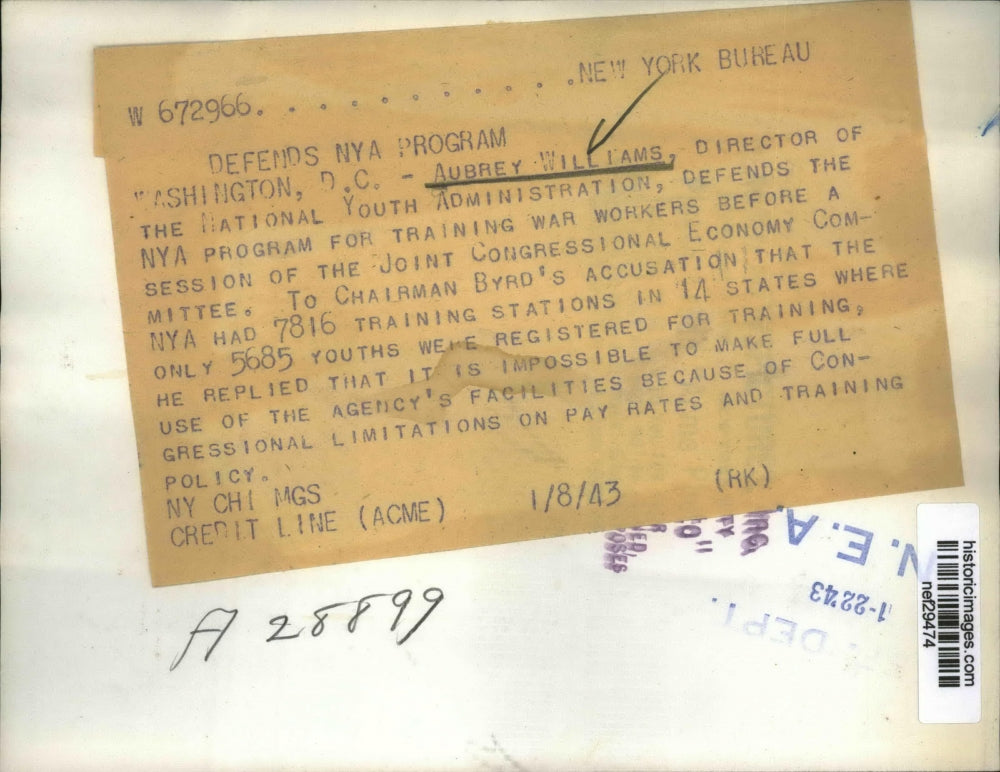 W 672966. . . . . . . . . . . .NEW YORK BUREAU
DEFENDS NYA PROGRAM
WASHINGTON, D.C. - AUBREY WILLIAMS, DIRECTOR OF
THE NATIONAL YOUTH ADMINISTRATION, DEFENDS THE
NYA PROGRAM FOR TRAINING WAR WORKERS BEFORE A
SESSION OF THE JOINT CONGRESSIONAL ECONOMY COM-
MITTEE. TO CHAIRMAN BYRD'S ACCUSATION THAT THE
NYA HAD 7816 TRAINING STATIONS IN 14 STATES WHERE
ONLY 5685 YOUTHS WERE REGISTERED FOR TRAINING,
HE REPLIED THAT IT IS IMPOSSIBLE TO MAKE FULL
USE OF THE AGENCY'S FACILITIES BECAUSE OF CON-
GRESSIONAL LIMITATIONS ON PAY RATES AND TRAINING
POLICY.
NY CHI MGS
CREDIT LINE (ACME) 1/8/43 (RK)
A 28899
N.E.A.
1-2243
DEPT.
historicimages.com
nef29474